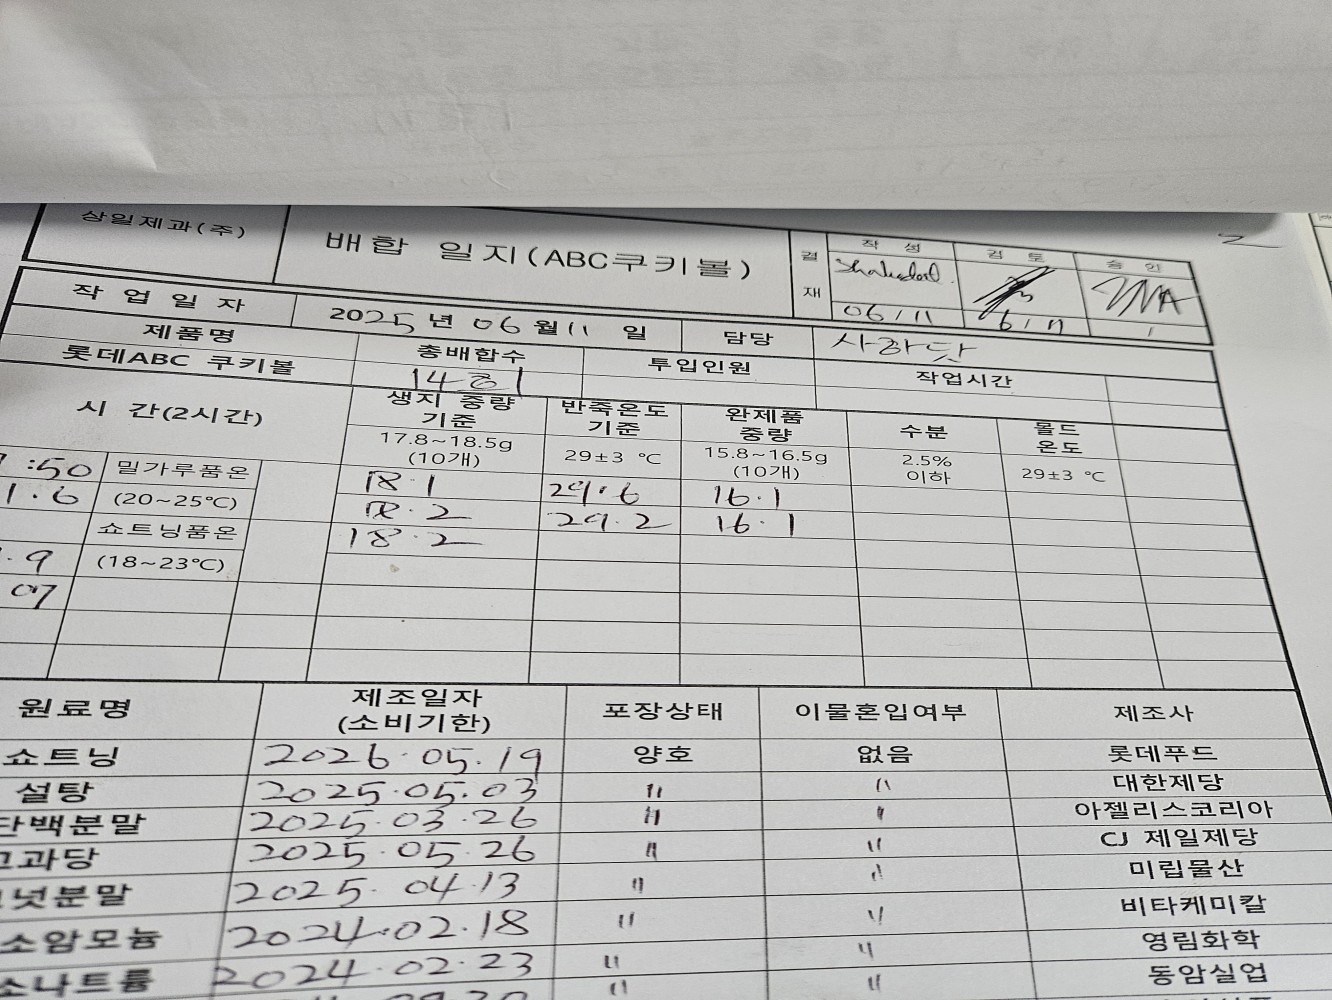 상일제과(주)
배합 일지(ABC쿠키볼)
결
재
작 성
검 토
승 인
06/11
6/11
작 업 일 자
2025년 06월 11 일
담당
사하닷
제품명
총배합수
투입인원
작업시간
롯데ABC 쿠키볼
시 간(2시간)
생지 중량
기준
반죽온도
기준
완제품
중량
수분
몰드
온도
17.8~18.5g
(10개)
29±3 ℃
15.8~16.5g
(10개)
2.5%
이하
29±3 ℃
:50 밀가루품온 18.1 29.6 16.1
1.6 (20~25℃) 18.2 29.2 16.1
쇼트닝품온 18.2
.9 (18~23℃)
07
원료명
제조일자
(소비기한)
포장상태
이물혼입여부
제조사
쇼트닝 2026.05.19 양호 없음 롯데푸드
설탕 2025.05.03 〃 〃 대한제당
단백분말 2025.03.26 〃 〃 아젤리스코리아
과당 2025.05.26 〃 〃 CJ 제일제당
넛분말 2025.04.13 〃 〃 미립물산
소암모늄 2024.02.18 〃 〃 비타케미칼
소나트륨 2024.02.23 〃 〃 영림화학
〃 〃 동암실업